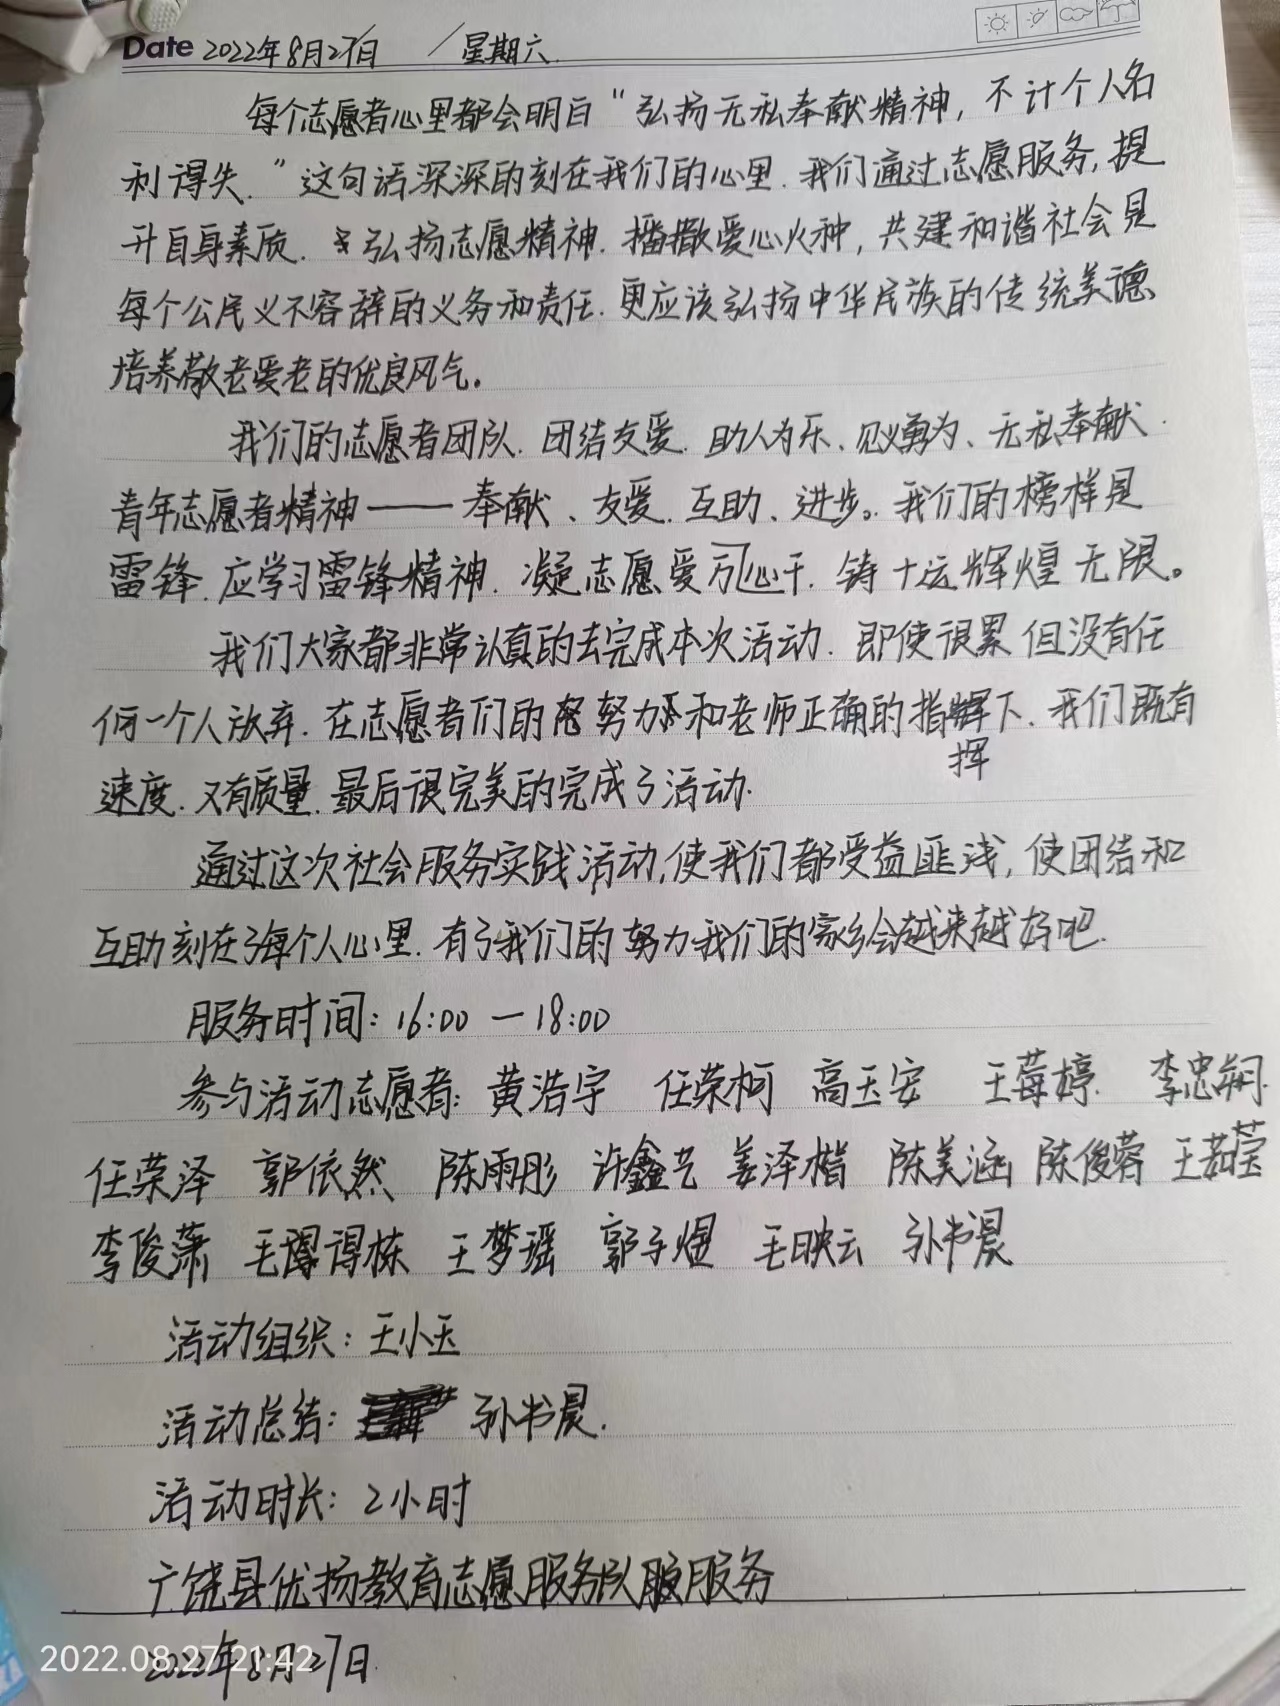 Date 2022年8月27日 / 星期六
每个志愿者心里都会明白“弘扬无私奉献精神，不计个人名
利得失.”这句话深深的刻在我们的心里.我们通过志愿服务,提
升自身素质.弘扬志愿精神.播撒爱心火种,共建和谐社会是
每个公民义不容辞的义务和责任.更应该弘扬中华民族的传统美德
培养敬老爱老的优良风气。
我们的志愿者团队.团结友爱.助人为乐、见义勇为、无私奉献.
青年志愿者精神——奉献、友爱.互助、进步。我们的榜样是
雷锋.应学习雷锋精神.凝志愿爱心万千.铸十运辉煌无限。
我们大家都非常认真的去完成本次活动.即使很累但没有任
何一个人放弃.在志愿者们的努力和老师正确的指挥下.我们既有
速度.又有质量.最后很完美的完成了活动.
通过这次社会服务实践活动,使我们都受益匪浅,使团结和
互助刻在了每个人心里.有了我们的努力我们的家乡会越来越好吧.
服务时间：16:00—18:00
参与活动志愿者：黄浩宇 任荣柯 高玉安 王莓婷. 李忠炯.
任荣泽 郭依然 陈雨彤 许鑫艺 姜泽楷 陈美涵 陈俊蓉 王茹莹
李俊萧 王得栋 王梦瑶 郭子煜 王映云 孙书晨
活动组织：王小玉
活动总结：孙书晨.
活动时长：2小时
广饶县优扬教育志愿服务队服务
2022年8月27日
2022.08.27 21:42